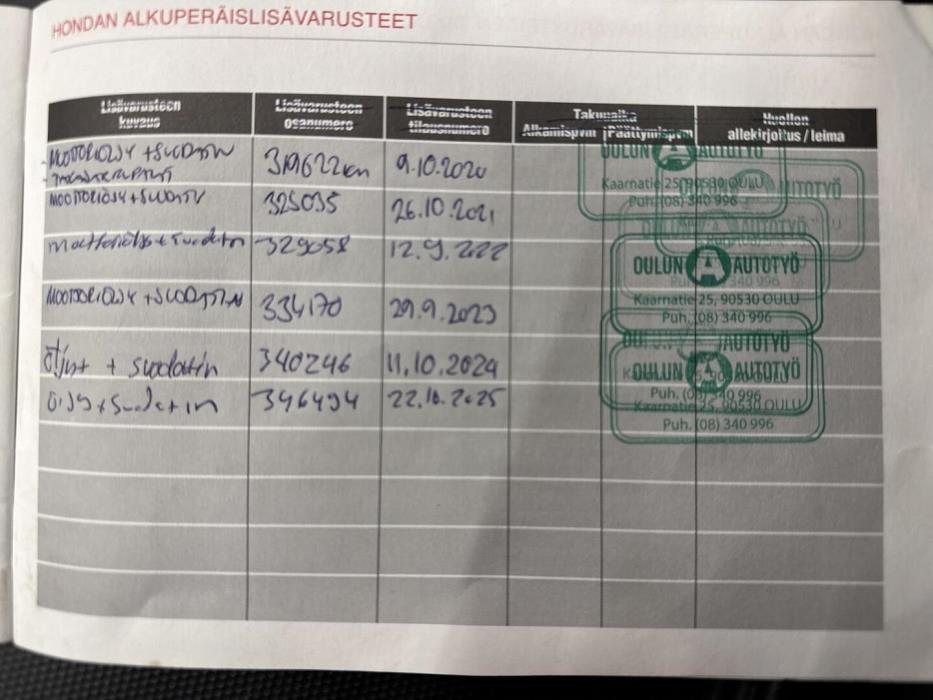 HONDAN ALKUPERÄISLISÄVARUSTEET
Lisävarusteen kuvaus Lisävarusteen osanumero Lisävarusteen tilausnumero Takuuaika Alkamispvm Päättymispvm Huollon allekirjoitus / leima
- MOOTTORIÖLJY + SUODATIN 319622km 9.10.2020
MOOTTORIÖLJY + SUODATIN 325035 26.10.2021
moottoriöljy + suodatin 329058 12.9.2022
MOOTTORIÖLJY + SUODATIN 334170 29.9.2023
öljyt + suodatin 340246 11.10.2024
öljy + suodatin 346494 22.10.2025
OULUN AUTOTYÖ
Kaarnatie 25, 90530 OULU
Puh. (08) 340 996
AUTOTYÖ
OULUN AUTOTYÖ
Kaarnatie 25, 90530 OULU
Puh. (08) 340 996
AUTOTYÖ
OULUN AUTOTYÖ
Puh. (08) 340 996
Kaarnatie 25, 90530 OULU
Puh. (08) 340 996